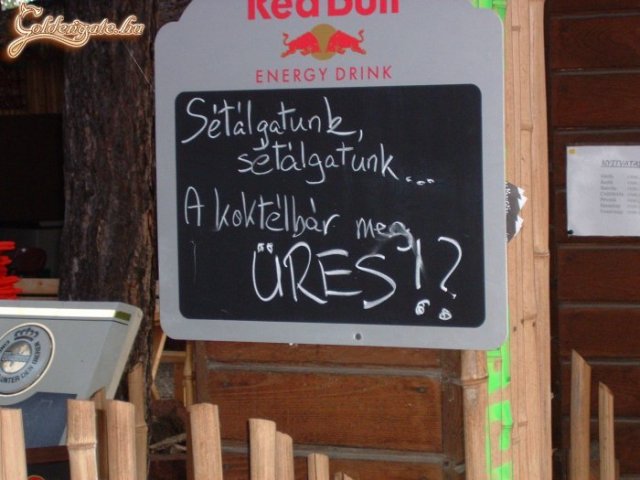 Goldengate.hu
Red Bull
ENERGY DRINK
Sétálgatunk,
sétálgatunk...
A koktélbár meg
ÜRES!?
NYITVATA